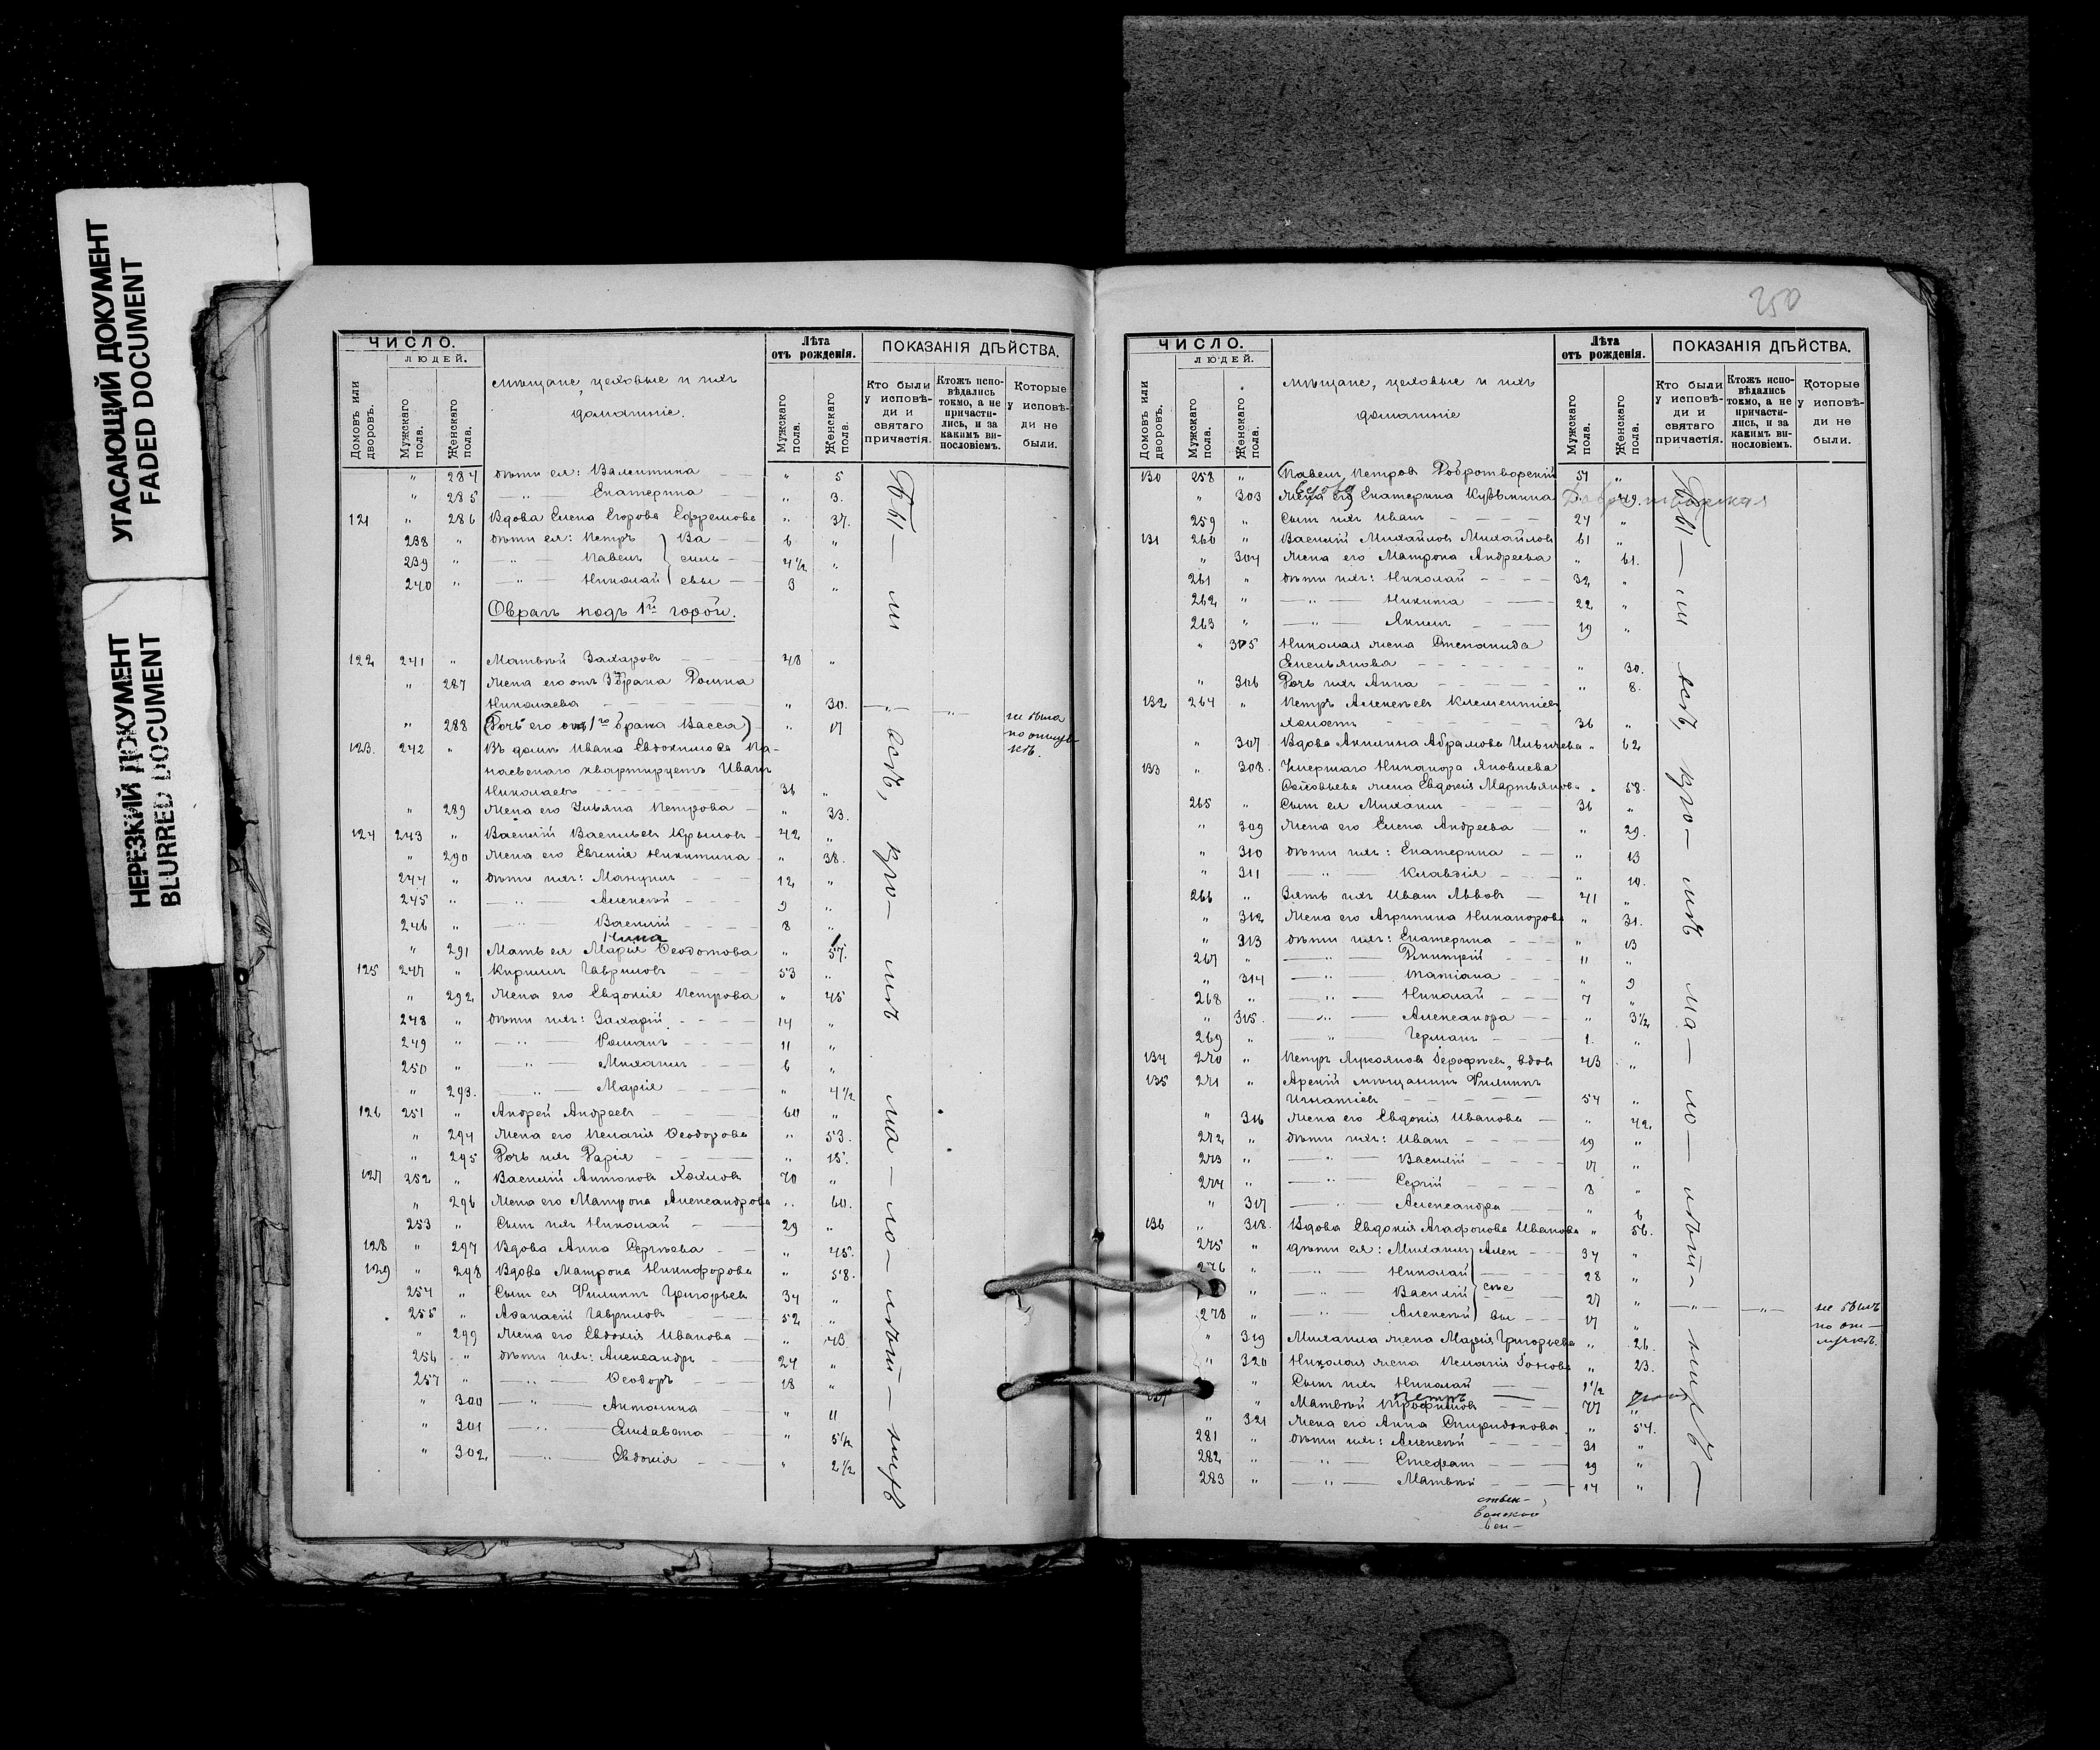 УГАСАЮЩИЙ ДОКУМЕНТ
FADED DOCUMENT
НЕРЕЗКИЙ ДОКУМЕНТ
BLURRED DOCUMENT
ЧИСЛО.
ЛЮДЕЙ.
Домовъ или дворовъ.
Мужскаго пола.
Женскаго пола.
Мѣщане, цеховые и ихъ
домашніе.
Лѣта
отъ рожденія.
Мужскаго пола.
Женскаго пола.
ПОКАЗАНІЯ ДѢЙСТВА.
Кто были у исповѣди и святаго причастія.
Ктожъ исповѣдались токмо, а не причастились, и за какимъ винословіемъ.
Которые у исповѣди не были.
" 284 дѣти ея: Валентина " 5
" 285 —"— Екатерина " 3.
121 " 286 Вдова Елена Егорова Ефремова " 37.
238 " дѣти ея: Петръ } Ва 6 "
239 " —"— Павелъ } силь 4½ "
240 " —"— Николай } евы 3 "
Оврагъ подъ 1й горой.
122 241 " Матвѣй Захаровъ 48 "
" 287 Жена его отъ 3го брака Домна
Николаева " 30.
" 288 (Дочь его отъ 1го брака Васса) " 17 " не была по отлучкѣ.
123. 242 " Въ домѣ Ивана Евдокимова
квартируетъ Иванъ
Николаевъ 36 "
" 289 Жена его Ульяна Петрова " 33.
124 243 " Василій Васильевъ Крыловъ 42 "
" 290 Жена его Евгенія Никитина " 38.
244 " дѣти ихъ: 12 "
245 " —"— Алексѣй 9 "
246 " —"— Василій 8 "
Нина
" 291 Мать ея Марія Ѳеодотова " 57.
125 247 " Кириллъ Гавриловъ 53 "
" 292 Жена его Евдокія Петрова " 45
248 " дѣти ихъ: Захарій 14 "
249 " —"— Романъ 11 "
250 " —"— Михаилъ 6 "
" 293. —"— Марія " 4½
126 251 " Андрей Андреевъ 60 "
" 294 Жена его Пелагія Ѳеодорова " 53.
" 295 Дочь ихъ Дарія " 15.
127 252 " Василій Антоновъ Хохловъ 70 "
" 296 Жена его Матрона Александрова " 60.
253 " Сынъ ихъ Николай 29 "
128 " 297 Вдова Анна Сергѣева " 45.
129 " 298 Вдова Матрона Никифорова " 58.
254 " Сынъ ея Филиппъ Григорьевъ 34 "
255 " Аѳанасій Гавриловъ 52 "
" 299 Жена его Евдокія Иванова " 43.
256 " дѣти ихъ: Александръ 24 "
257 " —"— Ѳеодоръ 18 "
" 300 —"— Антонина " 11
" 301 —"— Елизавета " 5½
" 302 —"— Евдокія " 2½
Бы — ли всѣ, кро — мѣ ма — ло — лѣт — нихъ
250
ЧИСЛО.
ЛЮДЕЙ.
Домовъ или дворовъ.
Мужскаго пола.
Женскаго пола.
Мѣщане, цеховые и ихъ
домашніе
Лѣта
отъ рожденія.
Мужскаго пола.
Женскаго пола.
ПОКАЗАНІЯ ДѢЙСТВА.
Кто были у исповѣди и святаго причастія.
Ктожъ исповѣдались токмо, а не причастились, и за какимъ винословіемъ.
Которые у исповѣди не были.
130 258 " Павелъ Петровъ Добротворскій 51 "
" 303 Жена его Екатерина Кузьмина " 49.
259 " Сынъ ихъ Иванъ 24 "
131 260 " Василій Михайловъ Михайловъ 61 "
" 304 Жена его Матрона Андреева " 61.
261 " дѣти ихъ: Николай 32 "
262 " —"— Никита 22 "
263 " —"— 19 "
" 305 Николая жена Степанида
Емельянова " 30.
" 306 Дочь ихъ Анна " 8.
132 264 " Петръ Алексѣевъ Клементьевъ
холостъ 36 "
" 307 Вдова Акилина Абрамова Ильичева " 62
133 " 308. Умершаго Никанора Яковлева
Соловьева жена Евдокія Мартьянова " 58.
265 " Сынъ ея Михаилъ 36 "
" 309 Жена его Елена Андреева " 29.
" 310 дѣти ихъ: Екатерина " 13
" 311 —"— Клавдія " 10.
266 " Зять ихъ Иванъ Львовъ 41 "
" 312 Жена его Агрипина Никанорова " 31.
" 313 дѣти ихъ: Екатерина " 13
267 " —"— Димитрій 11 "
" 314 —"— Татіана " 9
268 " —"— Николай 7 "
" 315. —"— Александра " 3½
269 " —"— Германъ 1. "
134 270 " Петръ Лукояновъ Ерофѣевъ, вдовъ 43 "
135 271 " Арскій мѣщанинъ Филиппъ
Игнатіевъ 54 "
" 316 Жена его Евдокія Иванова " 42.
272 " дѣти ихъ: Иванъ 19 "
273 " —"— Василій 17 "
274 " —"— Сергій 8 "
" 317 —"— Александра " 6
136 " 318. Вдова Евдокія Агафонова Иванова " 56.
275 " дѣти ея: Михаилъ } Алек 34 "
276 " —"— Николай 28 "
" —"— Василій } сѣе 27 "
278 " —"— Алексѣй } вы 17 " не былъ по отлучкѣ.
" 319 Михаила жена Марія Григорьева " 26.
" 320 Николая жена Пелагія " 23.
" Сынъ ихъ Николай 1½
Петръ
137 " Матвѣй Трофимовъ 77 "
" 321 Жена его Анна Спиридонова " 54.
281 " дѣти ихъ: Алексѣй 31 "
282 " —"— Стефанъ 19 "
283 " —"— Матвѣй 14 "
Бы — ли всѣ, кро — мѣ ма — ло — лѣт — нихъ